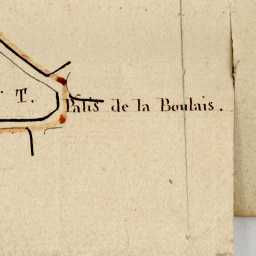 T.
Pâtis de la Boulais.